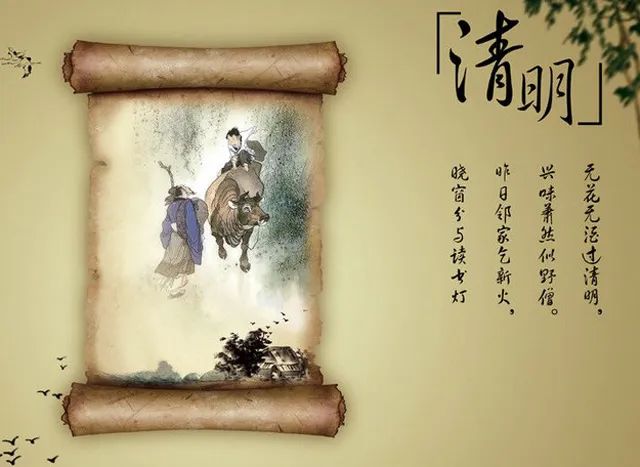 「清明」
无花无酒过清明，
兴味萧然似野僧。
昨日邻家乞新火，
晓窗分与读书灯